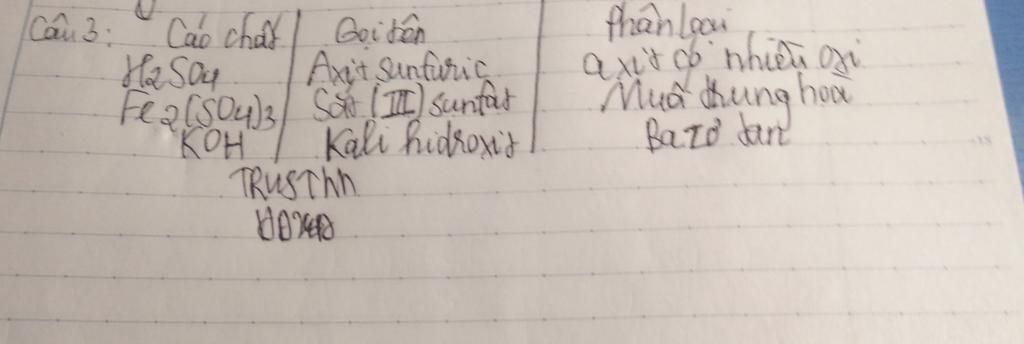 Câu 3: Các chất Gọi tên Phân loại
H2SO4 Axit sunfuric axit có nhiều oxi
Fe2(SO4)3 Sắt (III) sunfat Muối trung hoà
KOH Kali hidroxit Bazơ tan
TRUSThn